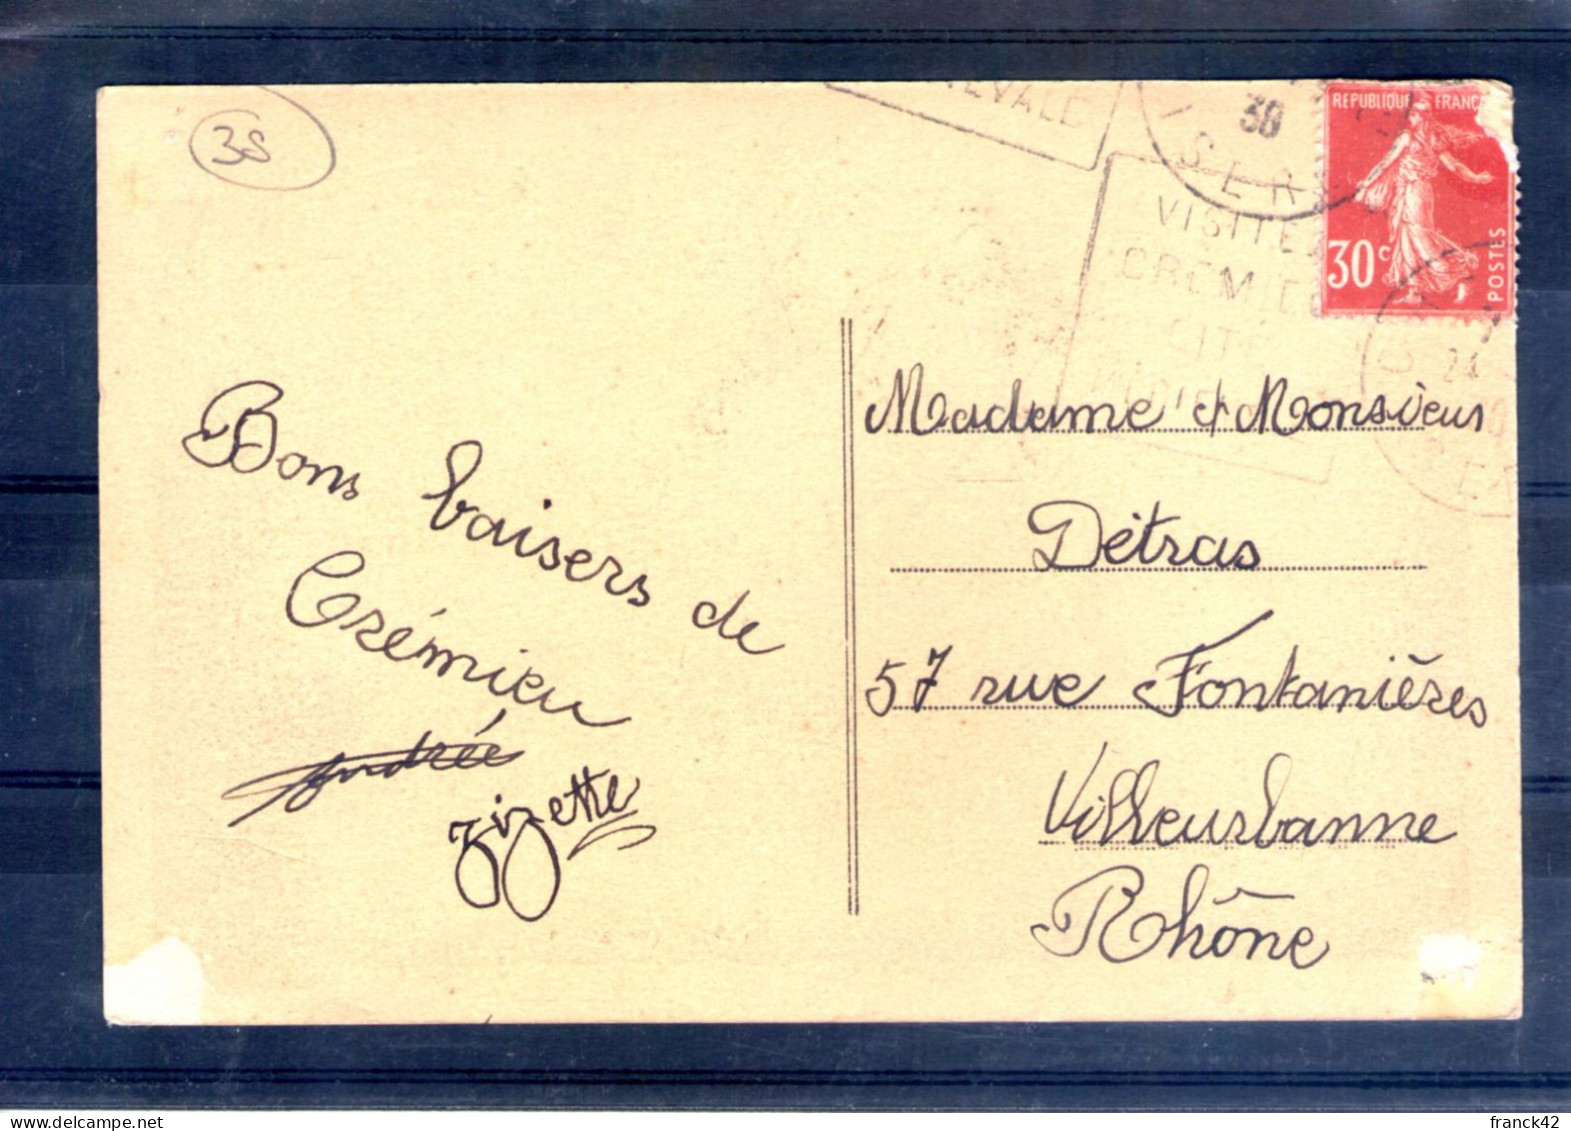 38
EVALE
30
ISERE
REPUBLIQUE FRANC
30c
POSTES
VISITEZ
CREMIE
CITE
24
Bons baisers de
Crémieu
Andrée
Zizette
Madame et Monsieur
Détras
57 rue Fontanières
Villeurbanne
Rhône
www.delcampe.net
franck42